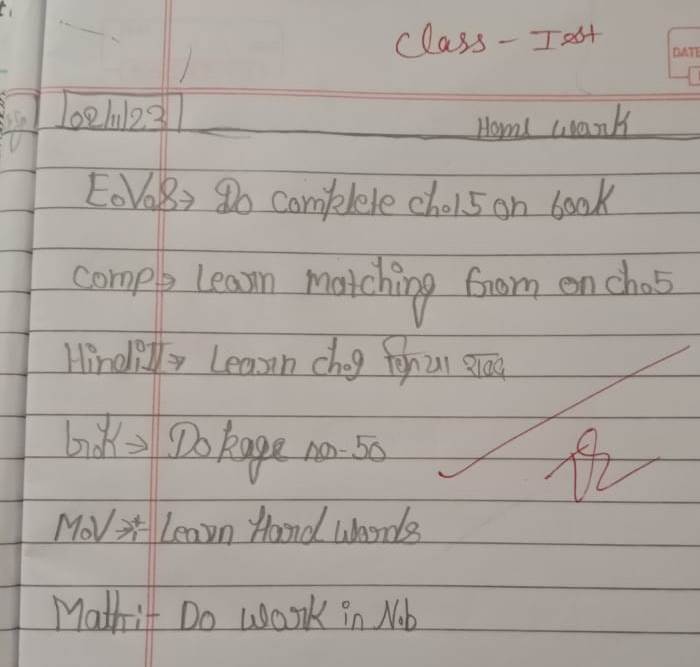 Class - Test
DATE
02/11/23 Home work
E.V.S→ Do complete ch.15 on book
Comp→ Learn matching from on ch.5
Hindi II→ Learn ch.9 क्रिया शब्द
G.K→ Do page no-50
M.V→:- Learn Hard words
Math:- Do work in N.b